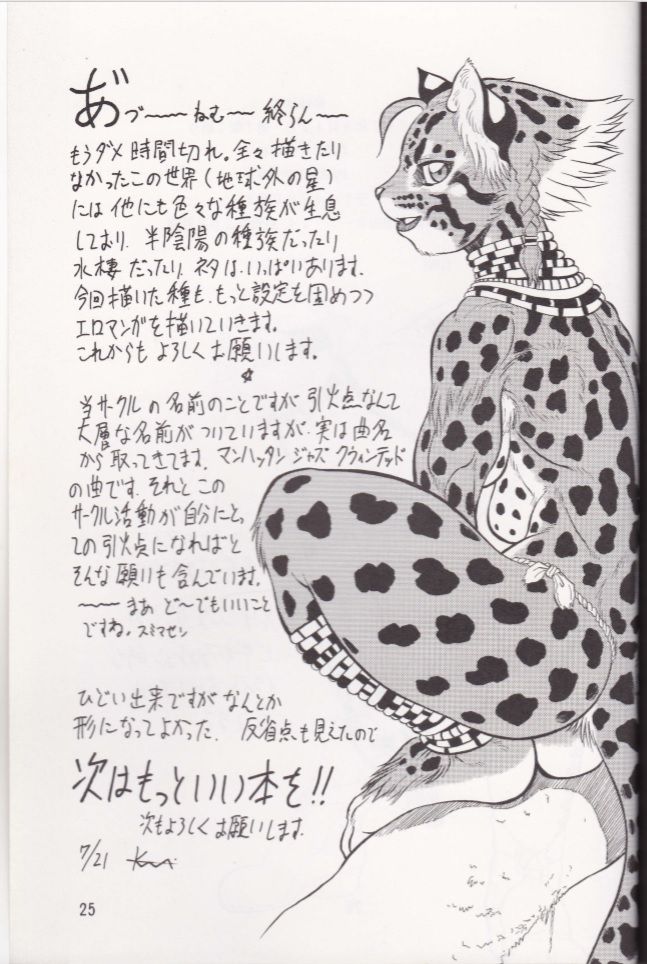 あ゛づ〜〜ねむ〜〜終らん〜〜
もうダメ時間切れ。全々描きたり
なかったこの世界(地球外の星)
には他にも色々な種族が生息
しており、半陰陽の種族だったり
水棲だったり、ネタはいっぱいあります。
今回描いた種も、もっと設定を固めつつ
エロマンガを描いていきます。
これからもよろしくお願いします。
☆
当サークルの名前のことですが引火点なんて
大層な名前がついていますが、実は曲名
から取ってきてます。マンハッタンジャズクウィンテッド
の曲です。それとこの
サークル活動が自分にとっ
ての引火点になればと
そんな願いも含んでいます。
〜〜まあど〜でもいいこと
ですね。スミマセン
ひどい出来ですがなんとか
形になってよかった。反省点も見えたので
次はもっといい本を!!
次もよろしくお願いします。
7/21
25